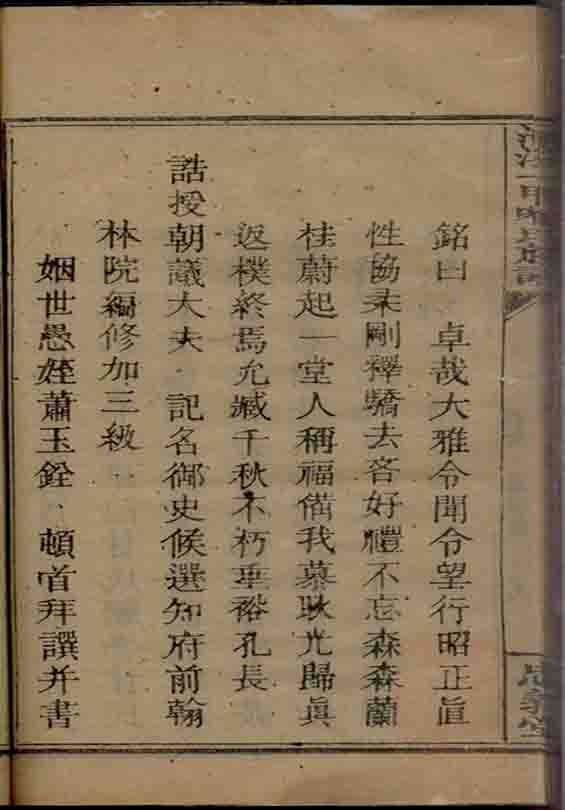 銘曰　卓哉大雅令聞令望行昭正直
性協柔剛釋驕去吝好禮不忘森森蘭
桂蔚起一堂人稱福備我慕耿光歸眞
返樸終焉允臧千秋不朽垂裕孔長
誥授朝議大夫　記名御史候選知府前翰
林院編修加三級
姻世愚姪蕭玉銓　頓首拜譔并書